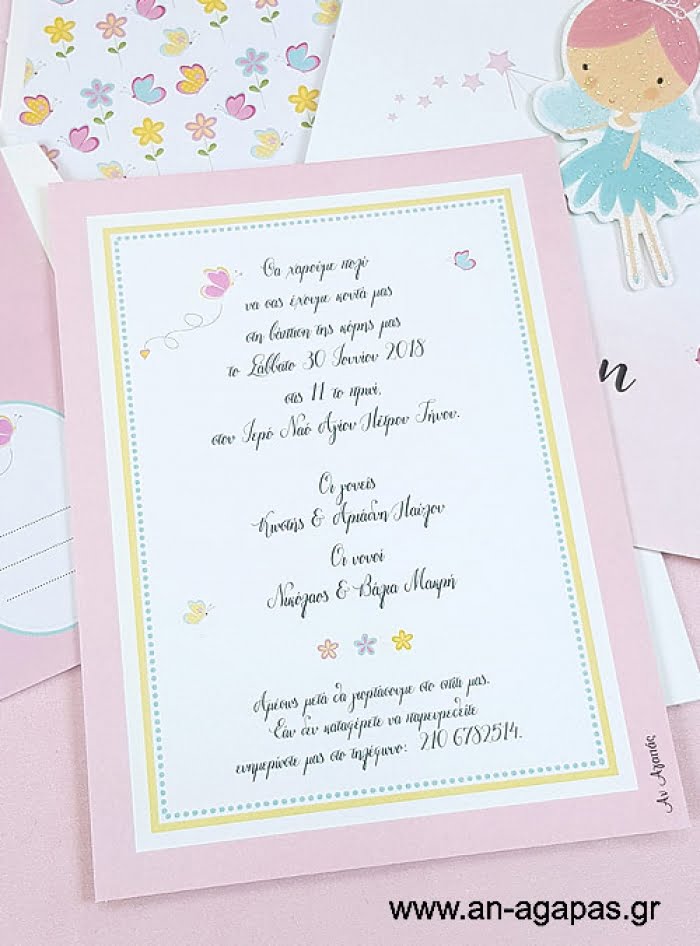 Θα χαρούμε πολύ
να σας έχουμε κοντά μας
στη βάπτιση της κόρης μας
το Σάββατο 30 Ιουνίου 2018
στις 11 το πρωί,
στον Ιερό Ναό Αγίου Πέτρου Τήνου.
Οι γονείς
Κωστής & Αριάδνη Παύλου
Οι νονοί
Νικόλαος & Βάλια Μακρή
Αμέσως μετά θα γιορτάσουμε στο σπίτι μας.
Εάν δεν καταφέρετε να παρευρεθείτε
ενημερώστε μας στο τηλέφωνο: 210 6782514.
Αν Αγαπάς
www.an-agapas.gr